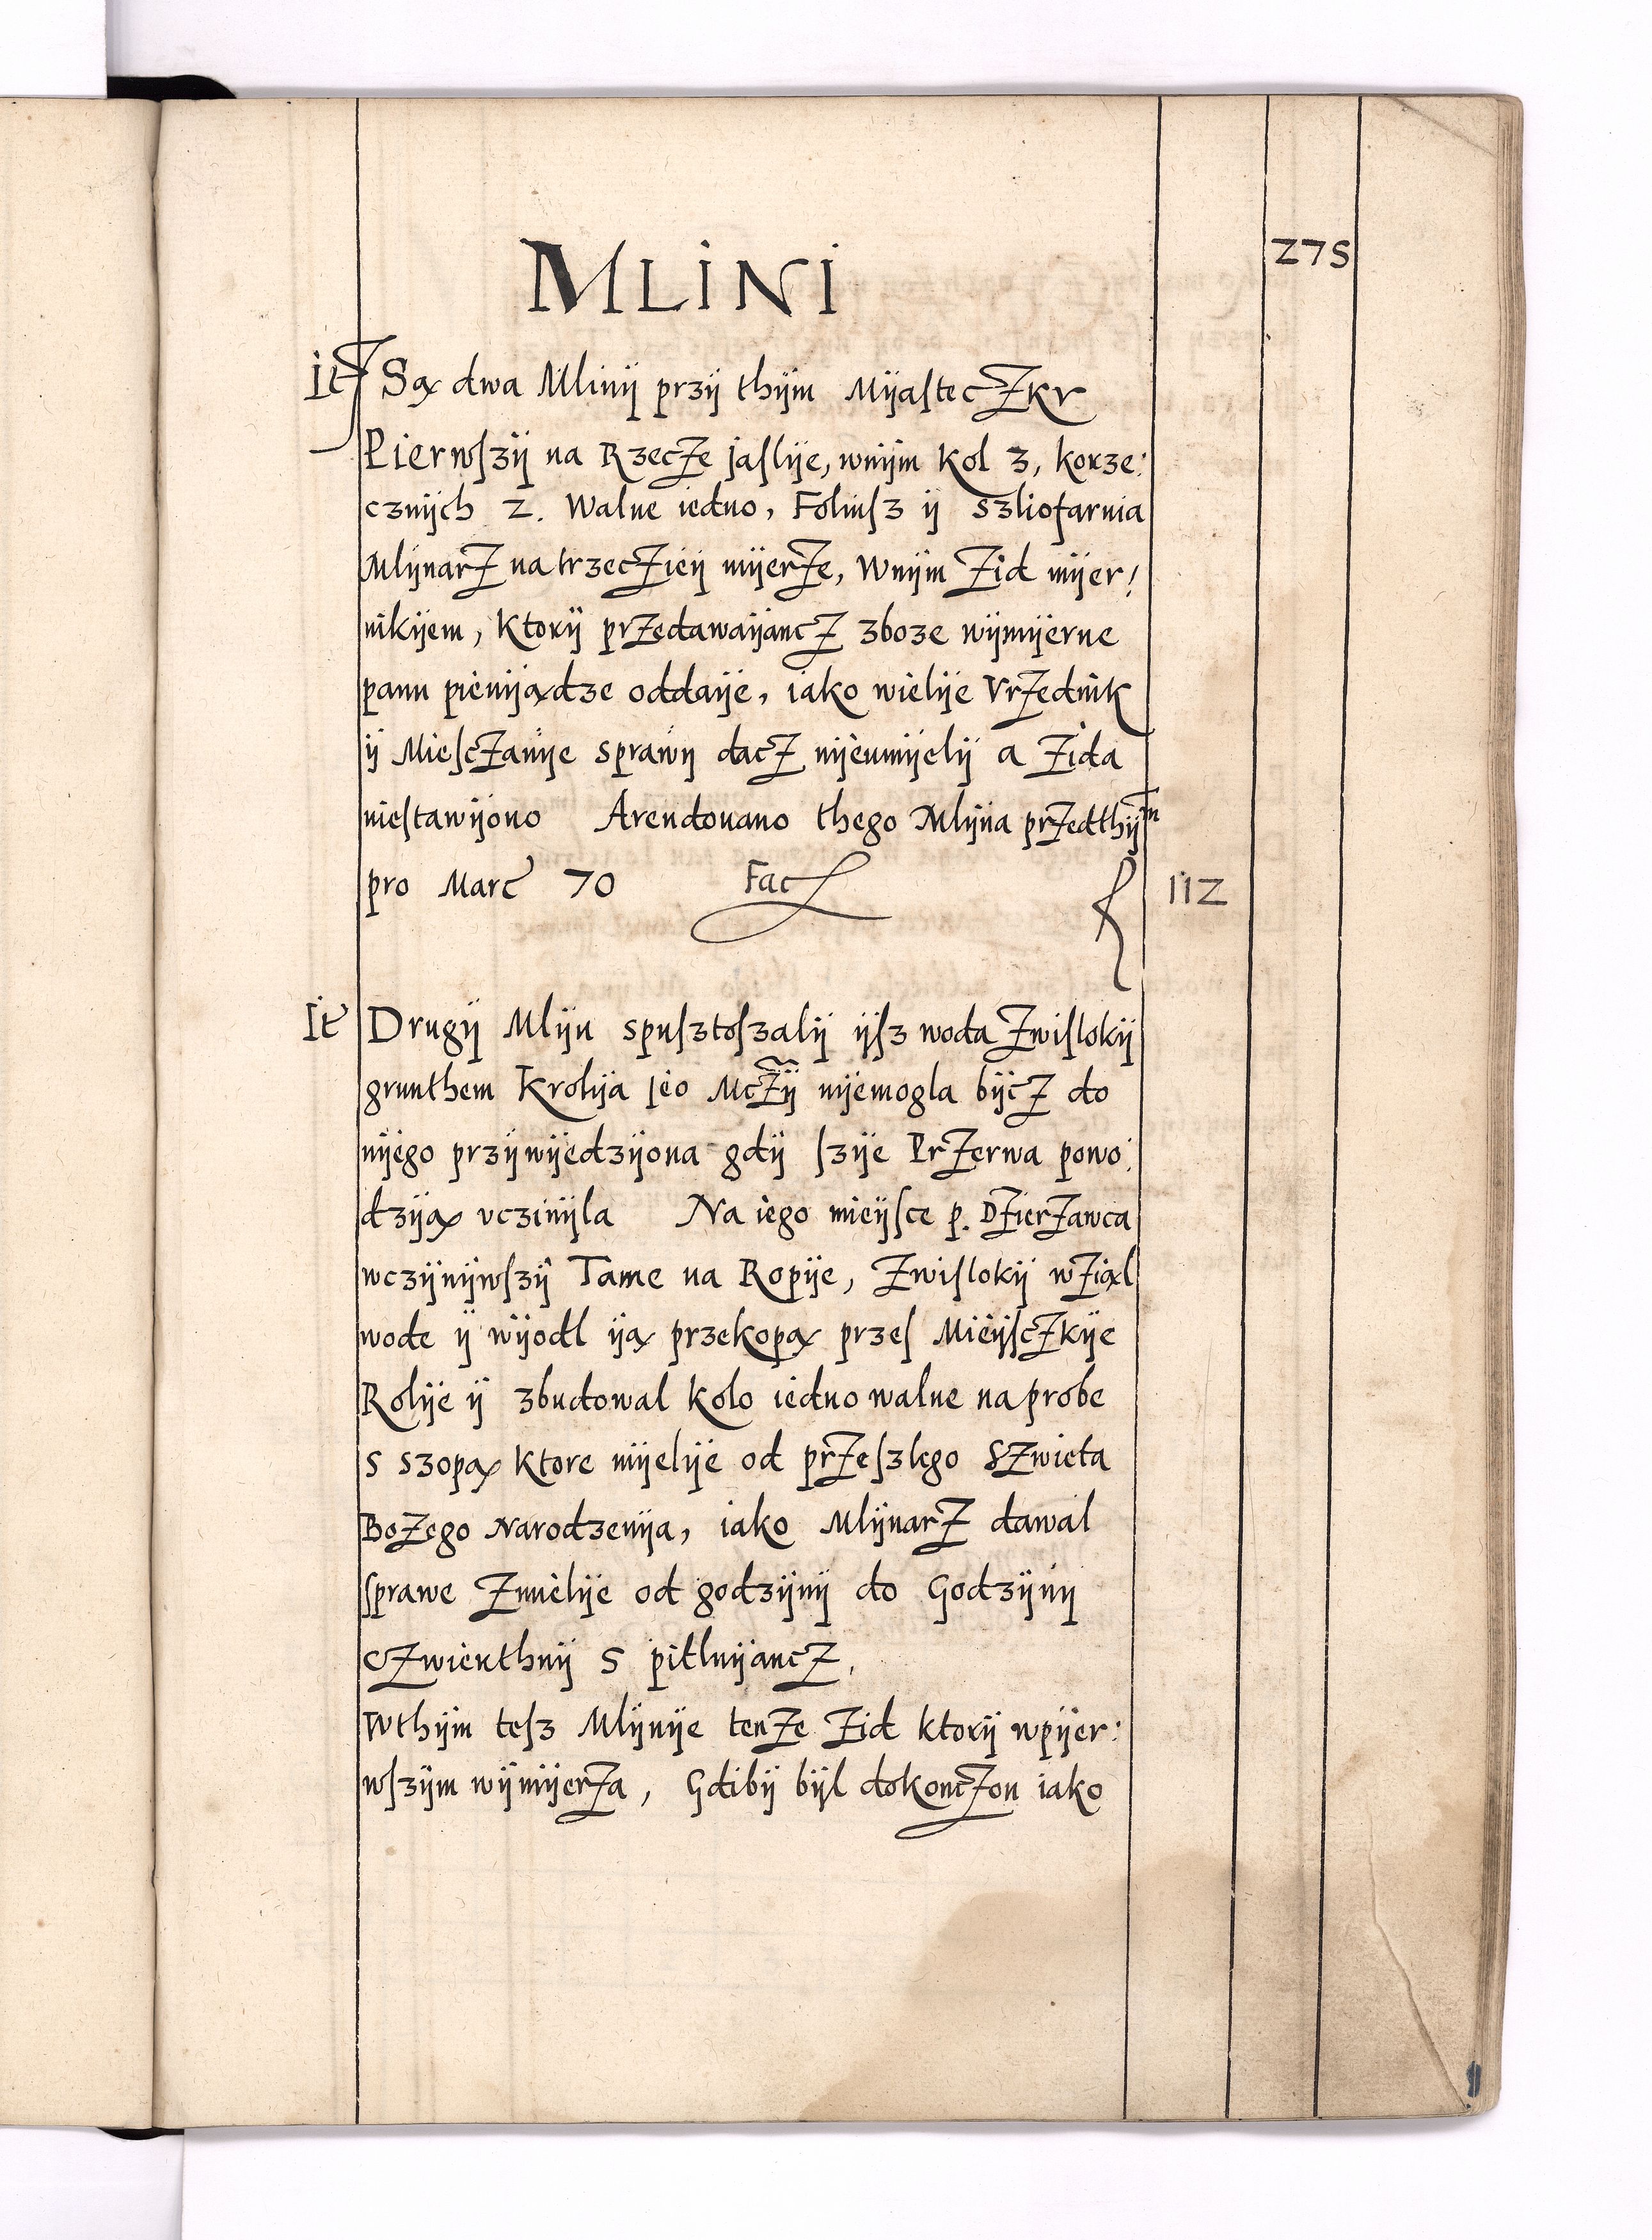 275
MLINI
It Są dwa Mlinÿ przÿ thÿm Mÿasteczku
Pierwszÿ na Rzecze jaslÿe, wnÿm Kol 3, korze:
cznÿch 2. Walne iedno, Folusz ÿ szliofarnia
Mlÿnarz na trzecziéÿ mÿerze, Wnÿm Zid mÿer:
nikÿem, Ktorÿ przedawaÿancz zboze wÿmÿerne
panu pieniÿądze oddaÿe, iako wielÿe Vrzednik
ÿ Miesczanÿe sprawÿ dacz nÿeumÿelÿ a Zida
niestawÿono Arendouano thego Mlÿna przedthÿm
pro Marc 70 Fac f 112
It Drugÿ Mlÿn spusztoszalÿ ÿsz woda Zwislokÿ
grunthem Krolÿa Ieo Mczÿ nÿemogla bÿcz do
nÿego przÿwÿedzÿona gdÿ szÿe Przerwa powo:
dzÿą vczinÿla Na iego mieÿsce p. Dzierzawca
wczÿnÿwszÿ Tame na Ropÿe, Zwislokÿ wziąl
wode ÿ wÿodl ÿą przekopą przes Mieÿsczkÿe
Rolÿe ÿ zbudowal kolo iedno walne na probe
s szopą Ktore mÿelÿe od przeszlego Szwieta
Bozego Narodzenÿa, iako Mlÿnarz dawal
sprawe Zmielÿe od godzÿnÿ do Godzÿnÿ
czwierthnÿ s pitluÿancz,
Wthÿm tesz Mlÿnÿe tenze Zid ktorÿ wpÿer:
wszÿm wÿmÿerza, Gdibÿ bÿl dokonczon iako